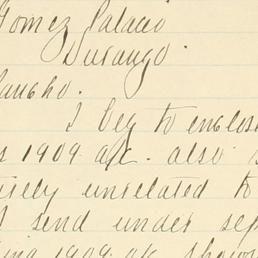 Gomez Palacio
Durango.
I beg to enclose
1909 a/c. also
unrelated to
I send under sep
1909 a/c